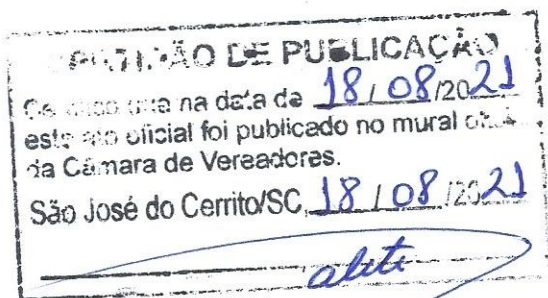 CERTIDÃO DE PUBLICAÇÃO
Certifico que na data de 18/08/2021
este ato oficial foi publicado no mural
da Câmara de Vereadores.
São José do Cerrito/SC, 18/08/2021